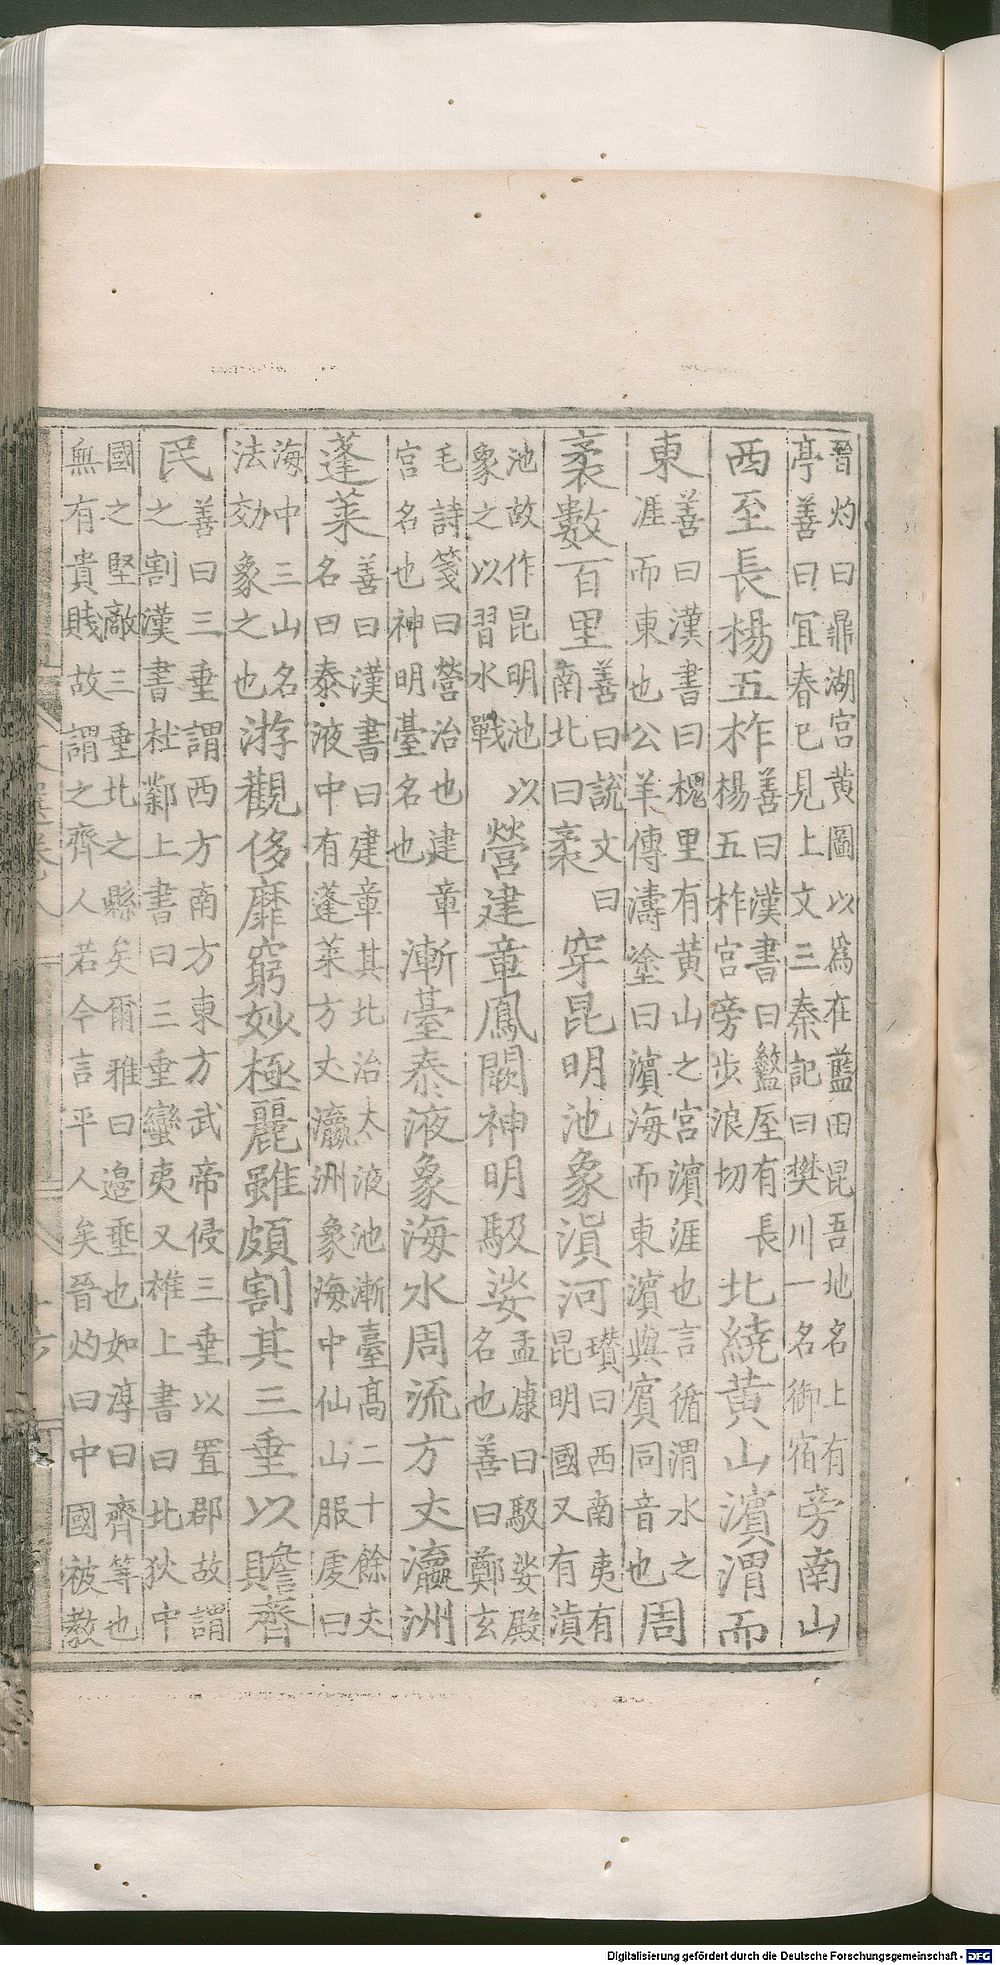 晉灼曰鼎湖宮黄圖以爲在藍田昆吾地名上有
亭善曰宜春已見上文三秦記曰樊川一名御宿
旁南山
西至長楊五柞
善曰漢書曰盩厔有長
楊五柞宮旁步浪切
北繞黄山濱渭而
東
善曰漢書曰槐里有黄山之宮濱涯也言循渭水之
涯而東也公羊傳濤塗曰濱海而東濱與賓同音也
周
袤數百里
善曰說文曰
南北曰袤
穿昆明池象滇河
瓚曰西南夷有
昆明國又有滇
池故作昆明池以
象之以習水戰
營建章鳳闕神明馺娑
孟康曰馺娑殿
名也善曰鄭玄
毛詩箋曰營治也建章
宮名也神明臺名也
漸臺泰液象海水周流方丈瀛洲
蓬萊
善曰漢書曰建章其北治太液池漸臺高二十餘丈
名曰泰液中有蓬萊方丈瀛洲象海中仙山服虔曰
海中三山名
法効象之也
游觀侈靡窮妙極麗雖頗割其三垂以贍齊
民
善曰三垂謂西方南方東方武帝侵三垂以置郡故謂
之割漢書杜鄴上書曰三垂蠻夷又椎上書曰北狄中
國之堅敵三垂北之縣矣爾雅曰邊垂也如淳曰齊等也
無有貴賤故謂之齊人若今言平人矣晉灼曰中國被教
Digitalisierung gefördert durch die Deutsche Forschungsgemeinschaft - DFG